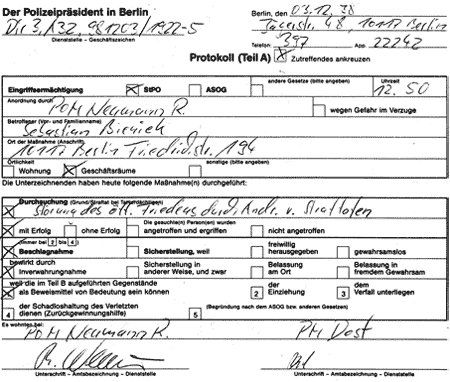 Der Polizeipräsident in Berlin
Berlin, den 03.12.98
Dir 3/A32, 981203/1922-5
Dienststelle – Geschäftszeichen
48, 10117 Berlin
Telefon App
397 22242
Protokoll (Teil A) X Zutreffendes ankreuzen
Eingriffsermächtigung X StPO ASOG andere Gesetze (bitte angeben) Uhrzeit
12.50
Anordnung durch
POM Neumann R. wegen Gefahr im Verzuge
Betroffener (Vor- und Familienname)
Sebastian Bieniek
Ort der Maßnahme (Anschrift)
10117 Berlin Friedrichstr. 194
Örtlichkeit
Wohnung X Geschäftsräume sonstige (bitte angeben)
Die Unterzeichnenden haben heute folgende Maßnahme(n) durchgeführt:
X Durchsuchung (Grund/Straftat bei Tatverdächtigen)
Störung des öff. Friedens durch Andr. v. Straftaten
Die gesuchte(n) Person(en) wurden
X mit Erfolg ohne Erfolg angetroffen und ergriffen nicht angetroffen
(immer bei 2 bis 4)
X Beschlagnahme Sicherstellung, weil freiwillig herausgegeben gewahrsamslos
bewirkt durch
X Inverwahrungnahme Sicherstellung in anderer Weise, und zwar Belassung am Ort Belassung in fremdem Gewahrsam
weil die im Teil B aufgeführten Gegenstände
X als Beweismittel von Bedeutung sein können 2 der Einziehung 3 dem Verfall unterliegen
4 der Schadloshaltung des Verletzten dienen (Zurückgewinnungshilfe) 5 (Begründung nach dem ASOG bzw. anderen Gesetzen)
Es wohnten bei
POM Neumann R. PM Dost
Unterschrift – Amtsbezeichnung – Dienststelle Unterschrift – Amtsbezeichnung – Dienststelle